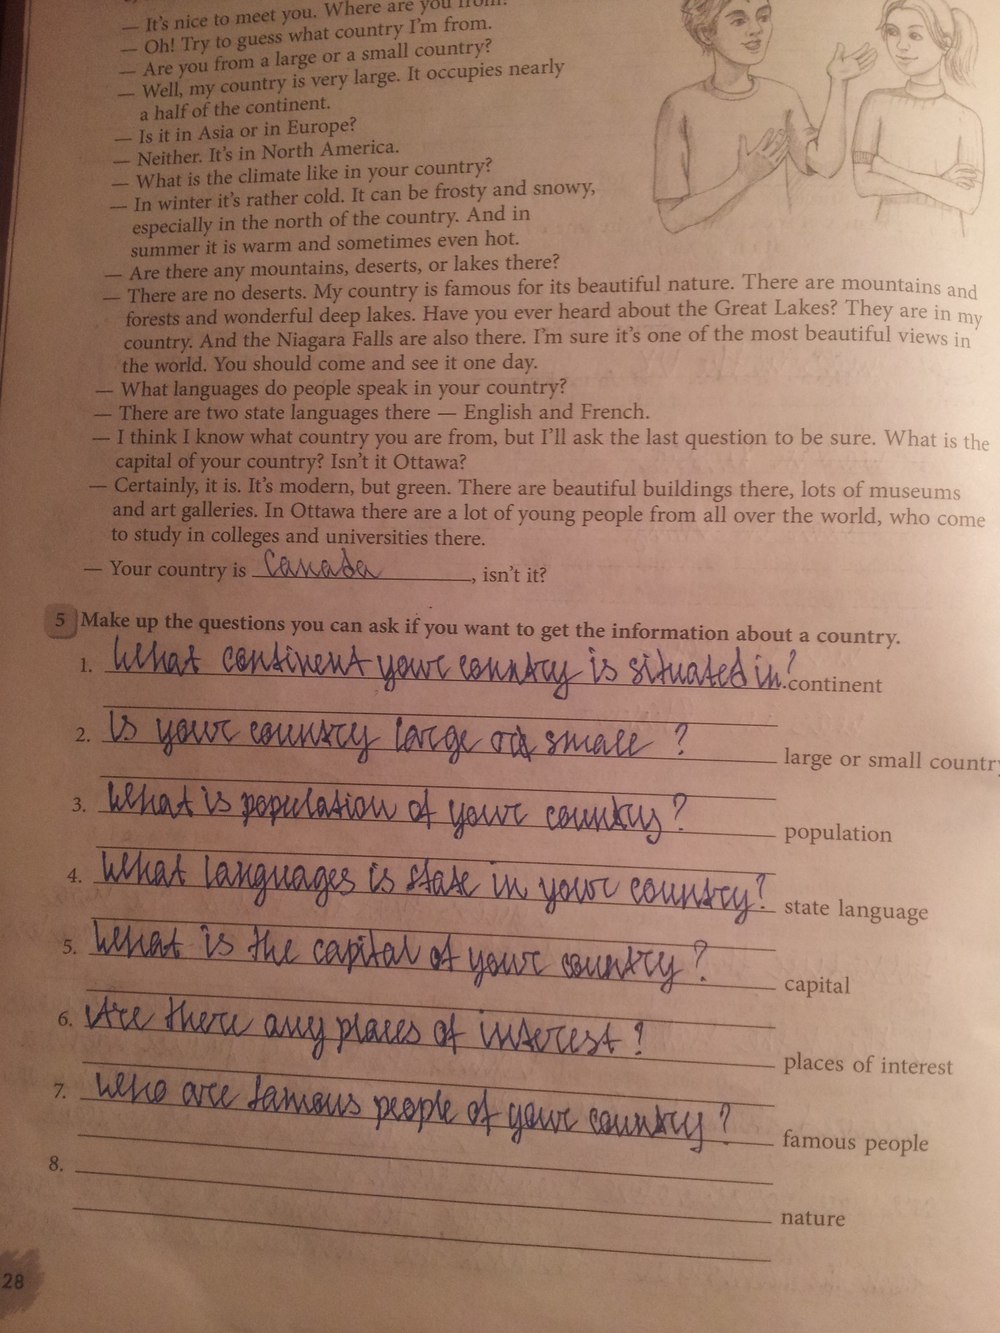 — It's nice to meet you. Where are you from.
— Oh! Try to guess what country I'm from.
— Are you from a large or a small country?
— Well, my country is very large. It occupies nearly
a half of the continent.
— Is it in Asia or in Europe?
— Neither. It's in North America.
— What is the climate like in your country?
— In winter it's rather cold. It can be frosty and snowy,
especially in the north of the country. And in
summer it is warm and sometimes even hot.
— Are there any mountains, deserts, or lakes there?
— There are no deserts. My country is famous for its beautiful nature. There are mountains and
forests and wonderful deep lakes. Have you ever heard about the Great Lakes? They are in my
country. And the Niagara Falls are also there. I'm sure it's one of the most beautiful views in
the world. You should come and see it one day.
— What languages do people speak in your country?
— There are two state languages there — English and French.
— I think I know what country you are from, but I'll ask the last question to be sure. What is the
capital of your country? Isn't it Ottawa?
— Certainly, it is. It's modern, but green. There are beautiful buildings there, lots of museums
and art galleries. In Ottawa there are a lot of young people from all over the world, who come
to study in colleges and universities there.
— Your country is Canada, isn't it?
5 Make up the questions you can ask if you want to get the information about a country.
1. What continent your country is situated in? continent
2. Is your country large or small? large or small country
3. What is population of your country? population
4. What languages is state in your country? state language
5. What is the capital of your country? capital
6. Are there any places of interest? places of interest
7. Who are famous people of your country? famous people
8. nature
28